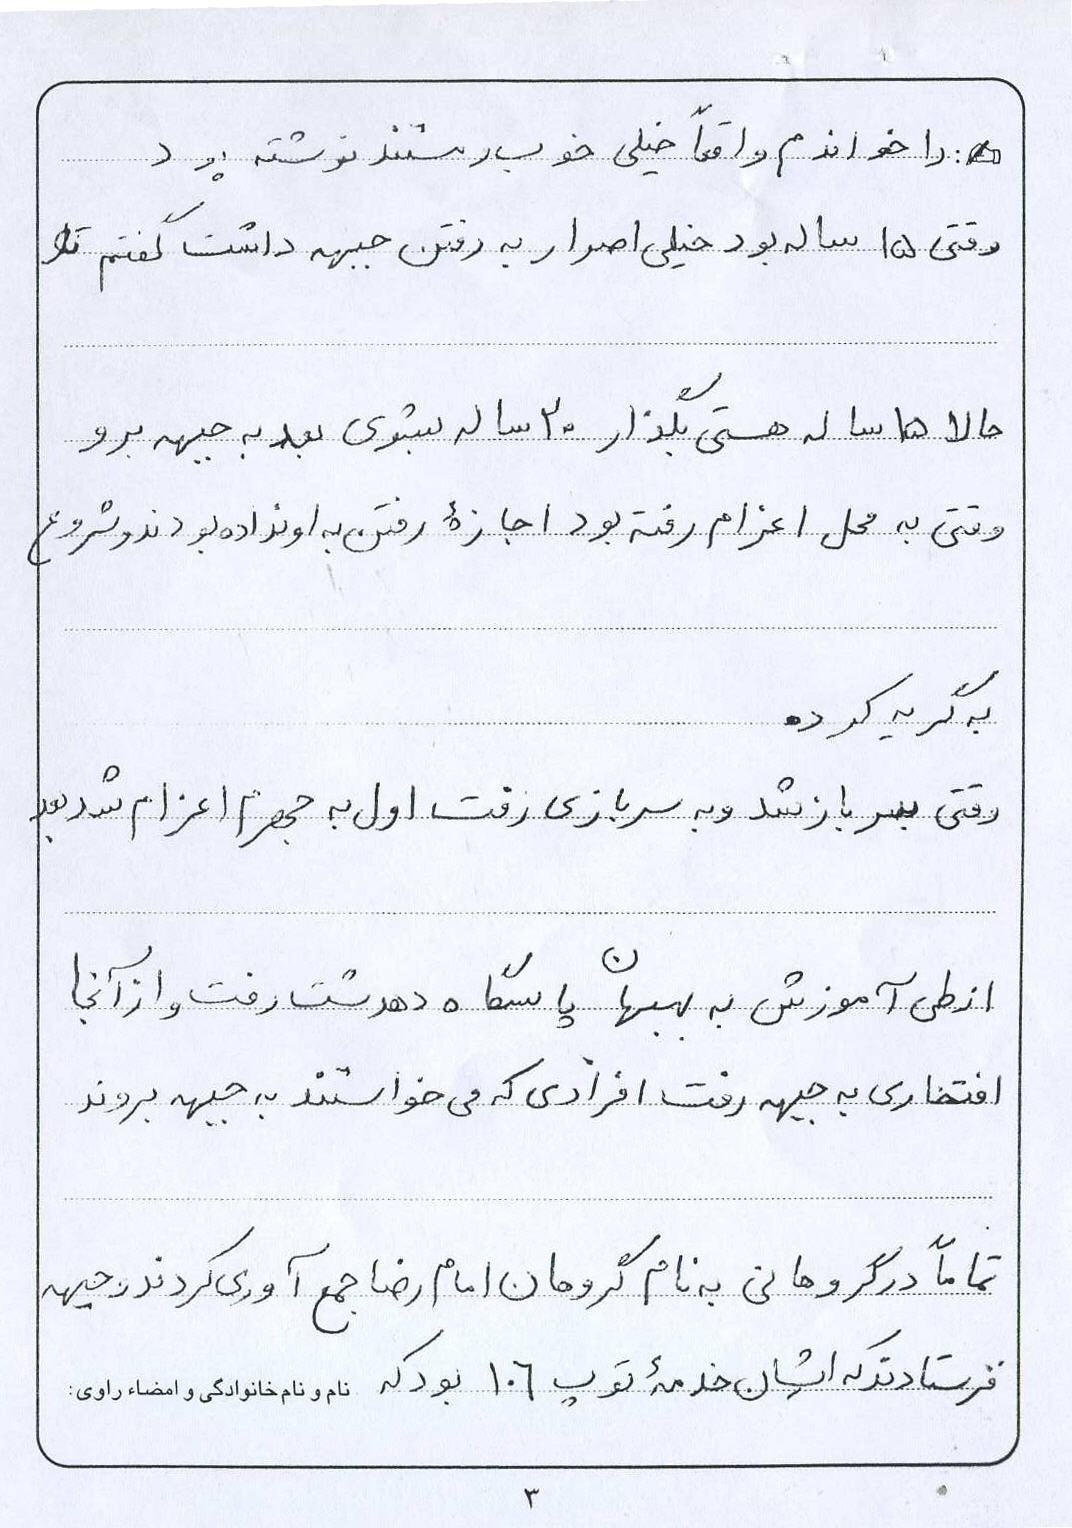 را خواندم واقعاً خیلی خوب و مستند نوشته بود
وقتی ۱۵ ساله بود خیلی اصرار به رفتن جبهه داشت گفتم تو
حالا ۱۵ ساله هستی بگذار ۲۰ ساله بشوی بعد به جبهه برو
وقتی به محل اعزام رفته بود اجازهٔ رفتن به او نداده بودند و شروع
به گریه کرده
وقتی سرباز شد و به سربازی رفت اول به جهرم اعزام شد بعد
از طی آموزش به بهبهان پاسگاه دهدشت رفت و از آنجا
افتخاری به جبهه رفت افرادی که می خواستند به جبهه بروند
تماماً در گروهانی به نام گروهان امام رضا جمع آوری کردند و جبهه
فرستادند که ایشان خدمهٔ توپ ۱۰۶ بود که
نام و نام خانوادگی و امضاء راوی:
۳